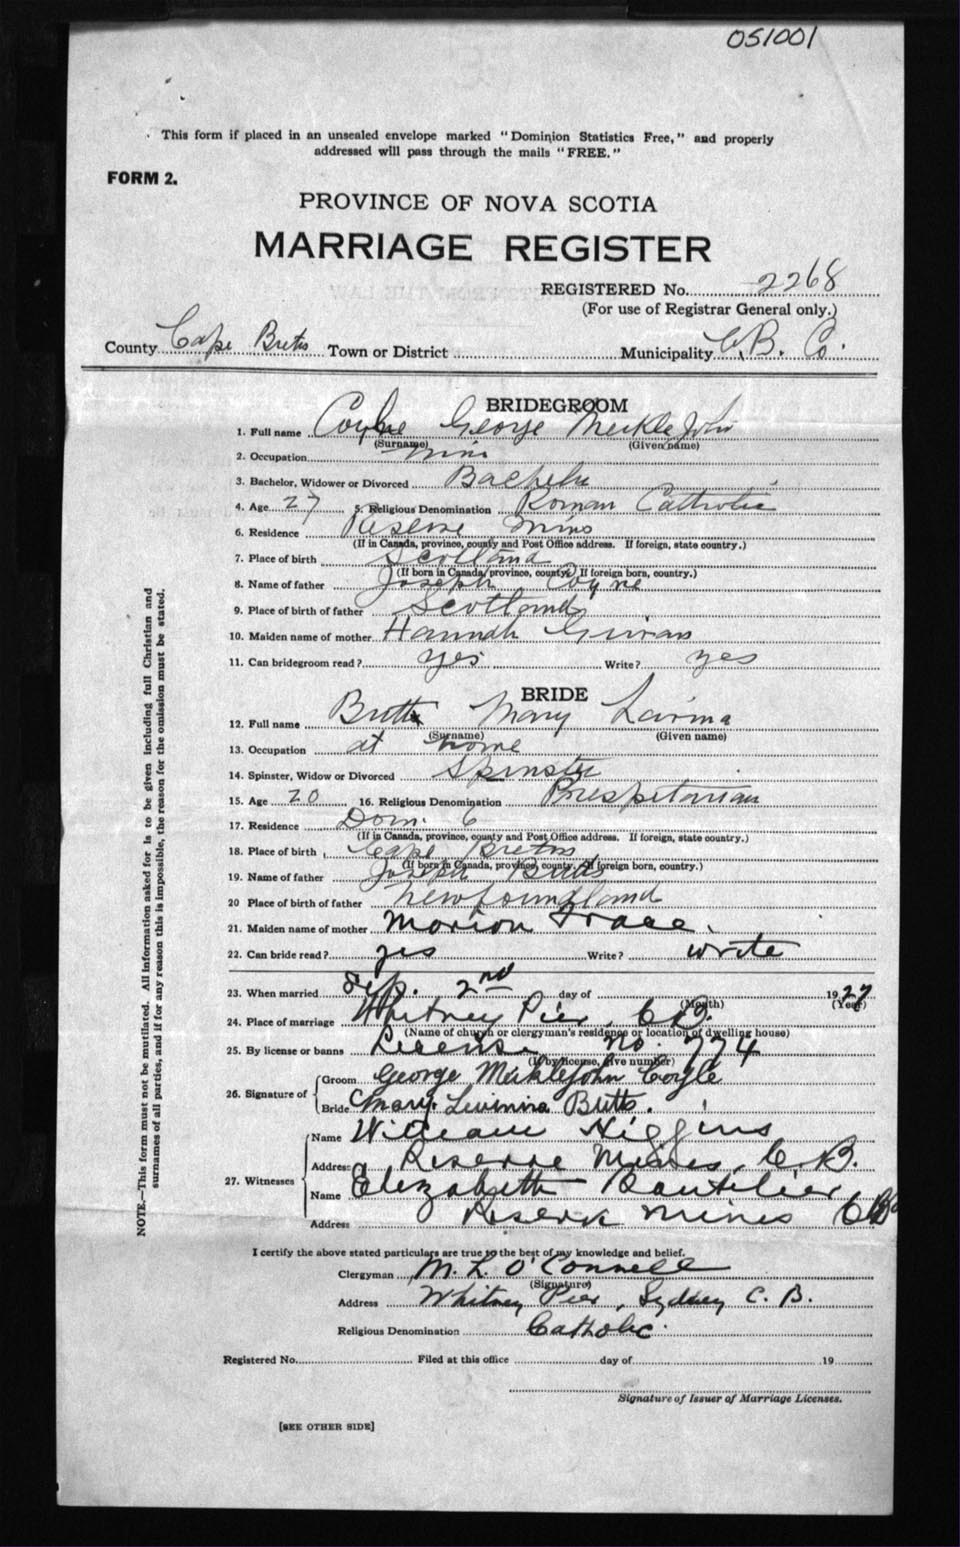 051001
This form if placed in an unsealed envelope marked "Dominion Statistics Free," and properly
addressed will pass through the mails "FREE."
FORM 2.
PROVINCE OF NOVA SCOTIA
MARRIAGE REGISTER
REGISTERED No. 2268
(For use of Registrar General only.)
County Cape Breton Town or District Municipality C.B. Co.
BRIDEGROOM
1. Full name George MeikleJohn
(Surname) (Given name)
2. Occupation
3. Bachelor, Widower or Divorced Bachelor
4. Age 27 5. Religious Denomination Roman Catholic
6. Residence Reserve Mines
(If in Canada, province, county and Post Office address. If foreign, state country.)
7. Place of birth Scotland
(If born in Canada, province, county. If foreign born, country.)
8. Name of father Joseph Coyne
9. Place of birth of father Scotland
10. Maiden name of mother Hannah
11. Can bridegroom read? yes Write? yes
BRIDE
12. Full name Butts Mary
(Surname) (Given name)
13. Occupation at home
14. Spinster, Widow or Divorced Spinster
15. Age 20 16. Religious Denomination Presbyterian
17. Residence Dom. 6
(If in Canada, province, county and Post Office address. If foreign, state country.)
18. Place of birth Cape Breton
(If born in Canada, province, county. If foreign born, country.)
19. Name of father Joseph Butts
20 Place of birth of father Newfoundland
21. Maiden name of mother Marion
22. Can bride read? yes Write? write
23. When married Sep. 2nd day of 1927
(Month) (Year)
24. Place of marriage Whitney Pier, C.B.
(Name of church or clergyman's residence or location of dwelling house)
25. By license or banns License no. 774
(If by license, give number)
26. Signature of
Groom George MeikleJohn Coyle
Bride Mary Levinina Butts.
27. Witnesses
Name William Higgins
Address Reserve Mines, C.B.
Name Elizabeth
Address Reserve Mines CB
I certify the above stated particulars are true to the best of my knowledge and belief.
Clergyman M. L. O'Connell
(Signature)
Address Whitney Pier, Sydney C. B.
Religious Denomination Catholic
Registered No. Filed at this office day of 19
Signature of Issuer of Marriage Licenses.
[SEE OTHER SIDE]
NOTE.—This form must not be mutilated. All information asked for is to be given including full Christian and
surnames of all parties, and if for any reason this is impossible, the reason for the omission must be stated.